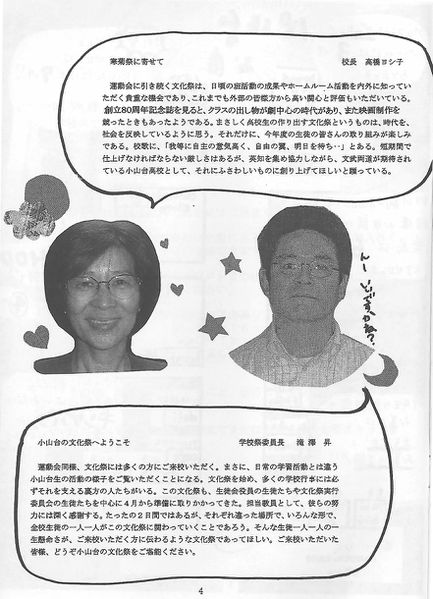 寒菊祭に寄せて 校長 高橋ヨシ子
運動会に引き続く文化祭は、日頃の班活動の成果やホームルーム活動を内外に知ってい
ただく貴重な機会であり、これまでも外部の皆様方から高い関心と評価もいただいている。
創立80周年記念誌を見ると、クラスの出し物が劇中心の時代があり、また映画制作を
競ったときもあったようである。まさしく高校生の作り出す文化祭というものは、時代を、
社会を反映しているように思う。それだけに、今年度の生徒の皆さんの取り組みが楽しみ
である。校歌に、「我等に自主の意気高く、自由の翼、明日を待ち・・」とある。短期間で
仕上げなければならない厳しさはあるが、英知を集め協力しながら、文武両道が期待され
ている小山台高校として、それにふさわしいものに創り上げてほしいと願っている。
んー
どですかね?
小山台の文化祭へようこそ 学校祭委員長 滝澤 昇
運動会同様、文化祭には多くの方にご来校いただく。まさに、日常の学習活動とは違う
小山台生の活動の様子をご覧いただくことになる。文化祭を始め、多くの学校行事には必
ずそれを支える裏方の人たちがいる。この文化祭も、生徒会役員の生徒たちや文化祭実行
委員会の生徒たちを中心に４月から準備に取りかかってきた。担当教員として、彼らの努
力には深く感謝する。たったの２日間ではあるが、それぞれ違った場所で、いろんな形で、
全校生徒の一人一人がこの文化祭に関わっていくことであろう。そんな生徒一人一人の一
生懸命さが、ご来校いただく方に伝わるような文化祭であってほしい。ご来校いただいた
皆様、どうぞ小山台の文化祭をご堪能ください。
4